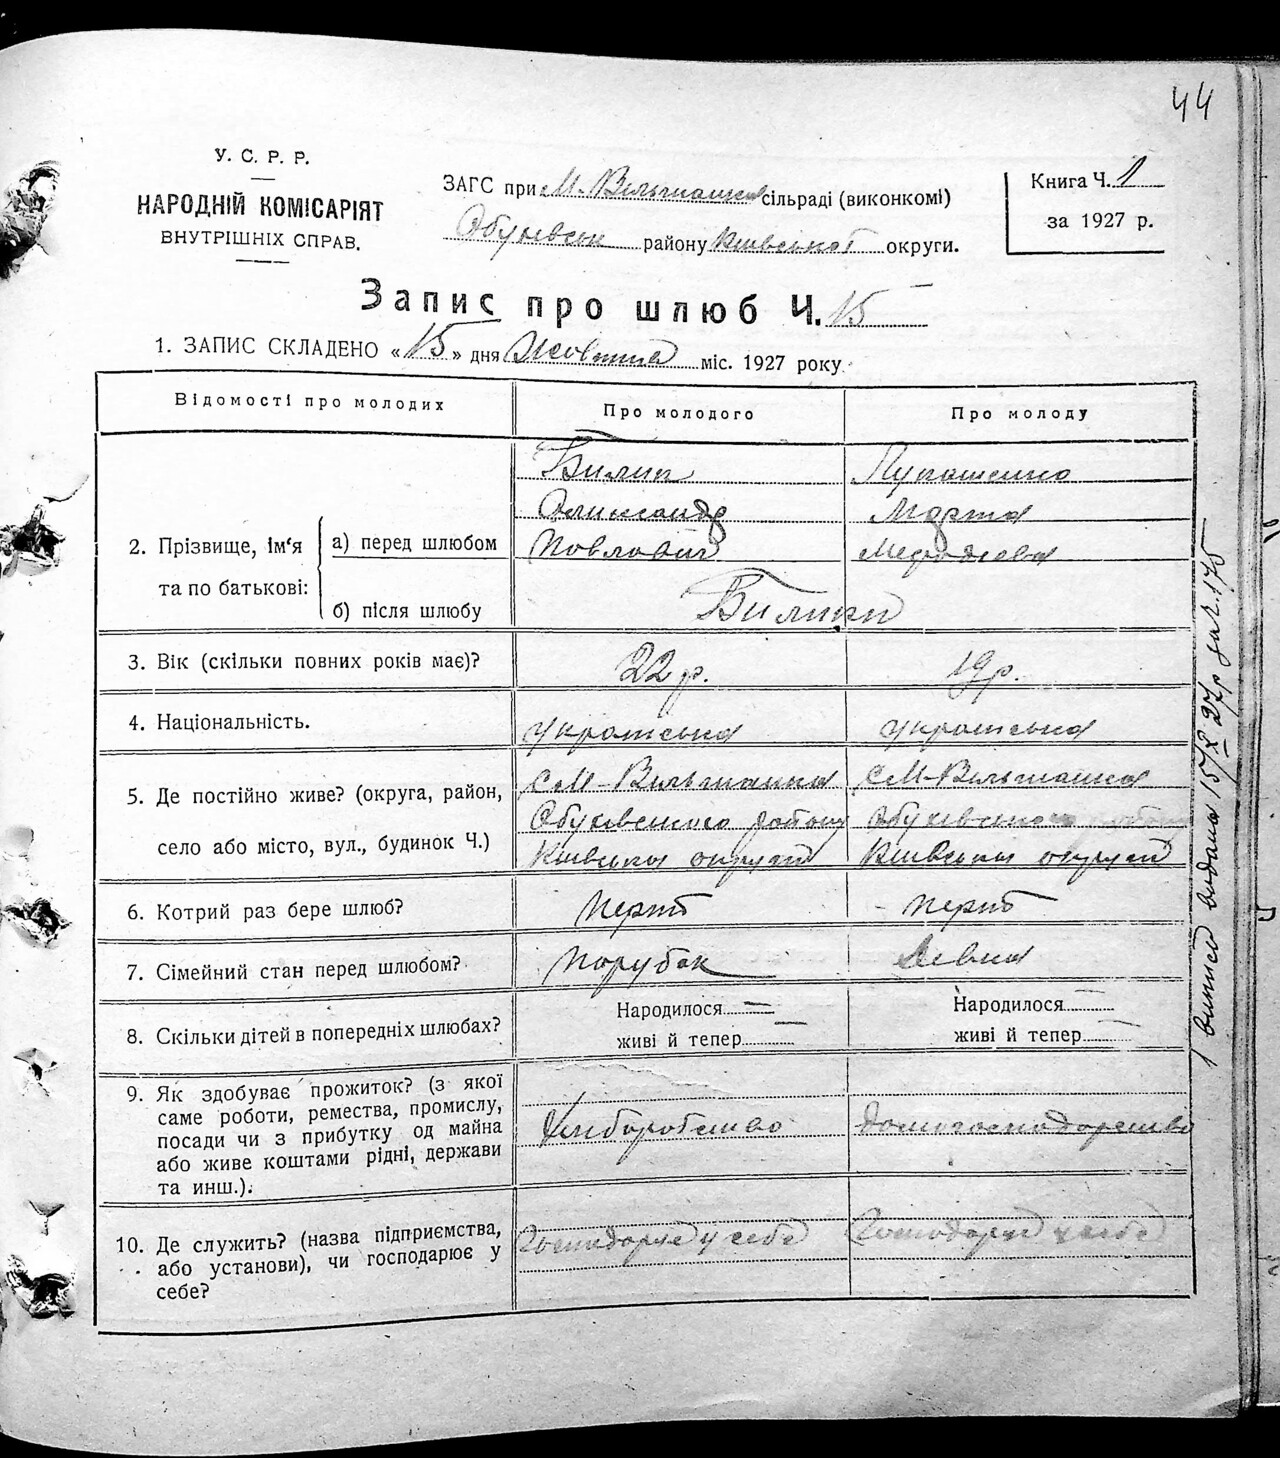 44
У. С. Р. Р.
НАРОДНІЙ КОМІСАРІЯТ
ВНУТРІШНІХ СПРАВ.
ЗАГС при М-Вільшанка сільраді (виконкомі)
району Київської округи.
Книга Ч. 1
за 1927 р.
Запис про шлюб Ч. 15
1. ЗАПИС СКЛАДЕНО « 15 » дня Жовтня міс. 1927 року
Відомості про молодих
Про молодого
Про молоду
2. Прізвище, ім'я та по батькові:
а) перед шлюбом
Билик
Олександр
Павлович
Лукашенко
Марта
б) після шлюбу
Билики
3. Вік (скільки повних років має)?
22 р.
19 р.
4. Національність.
українська
українська
5. Де постійно живе? (округа, район,
село або місто, вул., будинок Ч.)
С М-Вільшанка
Обухівського району
Київська округи
С М-Вільшанка
Обухівського району
Київська округи
6. Котрий раз бере шлюб?
перший
перший
7. Сімейний стан перед шлюбом?
Парубок
Дівка
8. Скільки дітей в попередніх шлюбах?
Народилося —
живі й тепер —
Народилося —
живі й тепер —
9. Як здобуває прожиток? (з якої
саме роботи, ремества, промислу,
посади чи з прибутку од майна
або живе коштами рідні, держави
та инш.).
Хліборобство
домогосподарство
10. Де служить? (назва підприємства,
або установи), чи господарює у
себе?
Господарює у себе
Господарює у себе
1 витяг видана 15/X 27 р за № 175